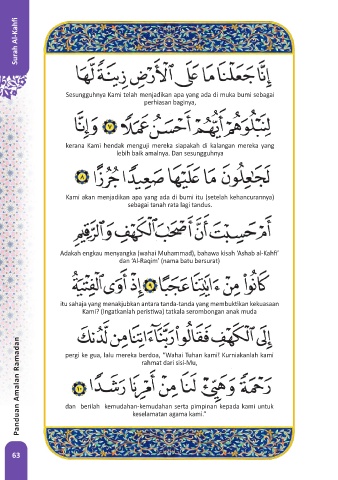 Surah Al-Kahfi
إِنَّا جَعَلْنَا مَا عَلَى ٱلْأَرْضِ زِينَةً لَّهَا
Sesungguhnya Kami telah menjadikan apa yang ada di muka bumi sebagai
perhiasan baginya,
لِنَبْلُوَهُمْ أَيُّهُمْ أَحْسَنُ عَمَلًا ٧ وَإِنَّا
kerana Kami hendak menguji mereka siapakah di kalangan mereka yang
lebih baik amalnya. Dan sesungguhnya
لَجَٰعِلُونَ مَا عَلَيْهَا صَعِيدًا جُرُزًا ٨
Kami akan menjadikan apa yang ada di bumi itu (setelah kehancurannya)
sebagai tanah rata lagi tandus.
أَمْ حَسِبْتَ أَنَّ أَصْحَٰبَ ٱلْكَهْفِ وَٱلرَّقِيمِ
Adakah engkau menyangka (wahai Muhammad), bahawa kisah 'Ashab al-Kahfi'
dan 'Al-Raqim' (nama batu bersurat)
كَانُوا۟ مِنْ ءَايَٰتِنَا عَجَبًا ٩ إِذْ أَوَى ٱلْفِتْيَةُ
itu sahaja yang menakjubkan antara tanda-tanda yang membuktikan kekuasaan
Kami? (Ingatkanlah peristiwa) tatkala serombongan anak muda
إِلَى ٱلْكَهْفِ فَقَالُوا۟ رَبَّنَآ ءَاتِنَا مِن لَّدُنكَ
pergi ke gua, lalu mereka berdoa, "Wahai Tuhan kami! Kurniakanlah kami
rahmat dari sisi-Mu,
رَحْمَةً وَهَيِّئْ لَنَا مِنْ أَمْرِنَا رَشَدًا ١٠
dan berilah kemudahan-kemudahan serta pimpinan kepada kami untuk
keselamatan agama kami."
Panduan Amalan Ramadan
63